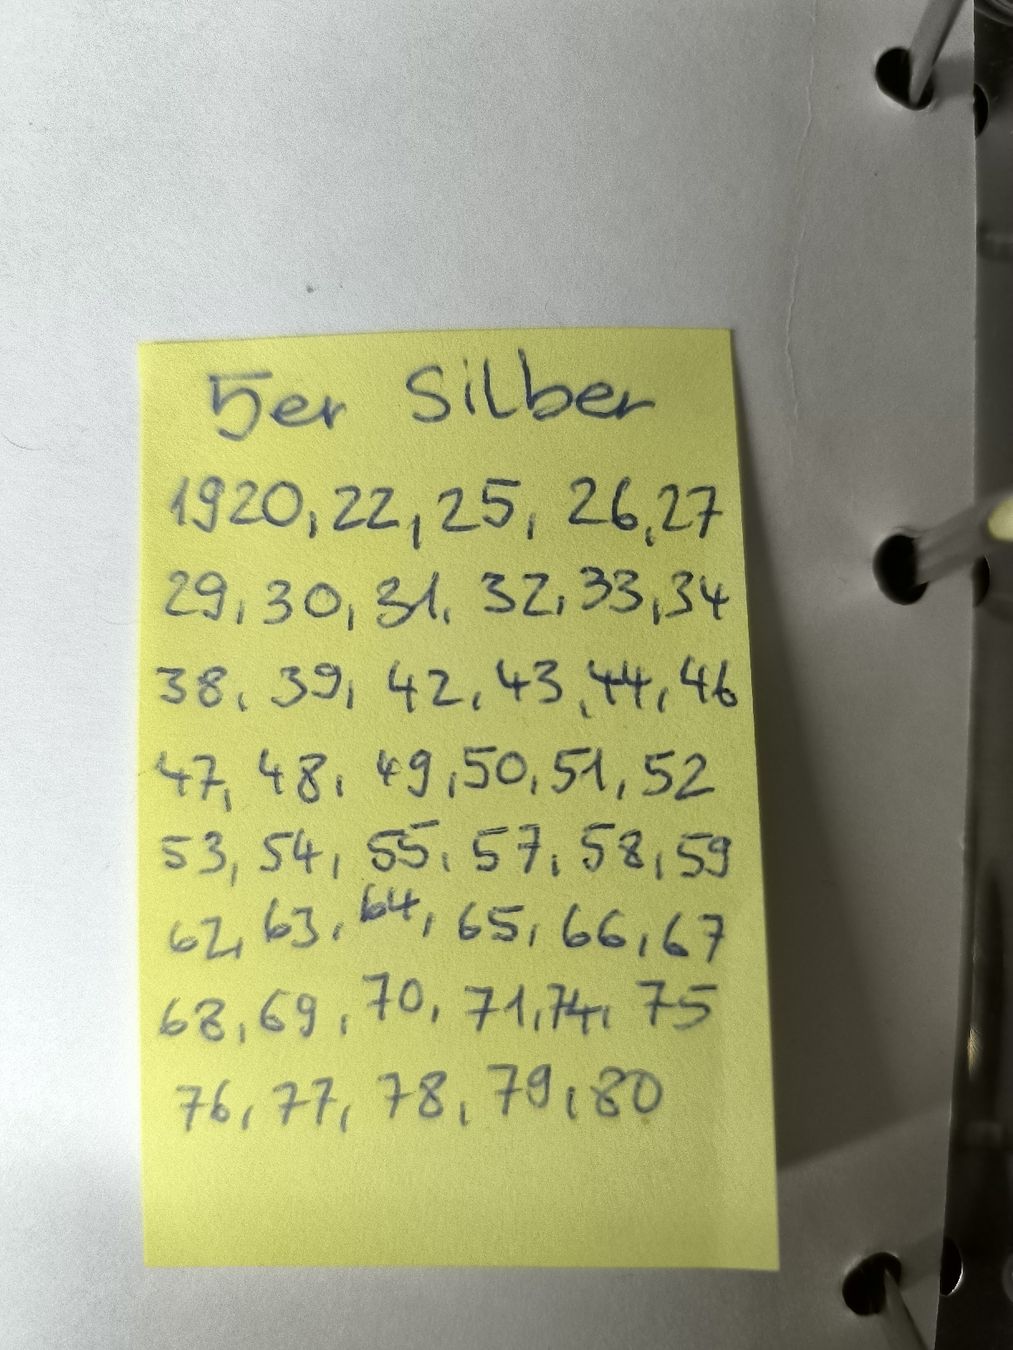 5er Silber
1920, 22, 25, 26, 27
29, 30, 31, 32, 33, 34
38, 39, 42, 43, 44, 46
47, 48, 49, 50, 51, 52
53, 54, 55, 57, 58, 59
62, 63, 64, 65, 66, 67
68, 69, 70, 71, 74, 75
76, 77, 78, 79, 80